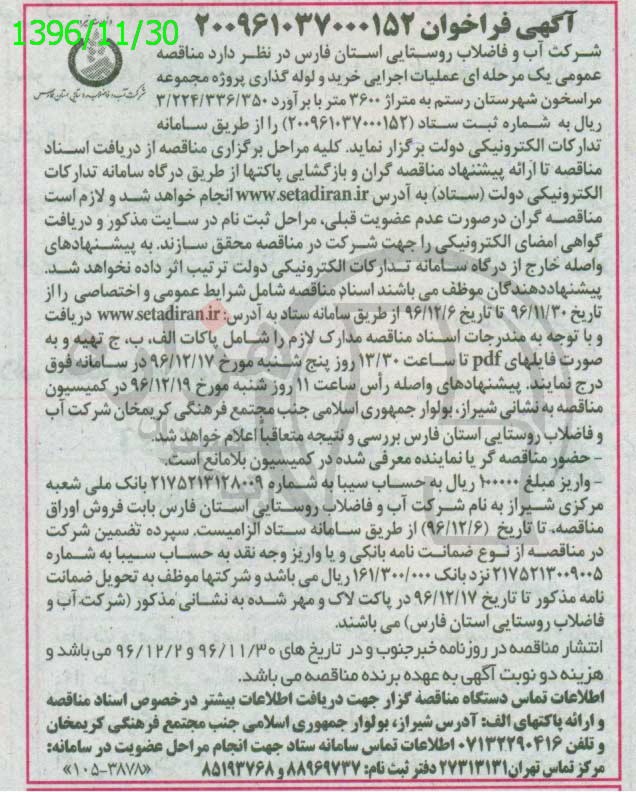 1396/11/30
آگهی فراخوان ۲۰۰۹۶۱۰۳۷۰۰۰۱۵۲
شرکت آب و فاضلاب روستایی استان فارس
شرکت آب و فاضلاب روستایی استان فارس در نظر دارد مناقصه
عمومی یک مرحله ای عملیات اجرایی خرید و لوله گذاری پروژه مجموعه
مراسخون شهرستان رستم به متراژ ۳۶۰۰ متر با برآورد ۳/۲۲۴/۳۳۶/۳۵۰
ریال به شماره ثبت ستاد (۲۰۰۹۶۱۰۳۷۰۰۰۱۵۲) را از طریق سامانه
تدارکات الکترونیکی دولت برگزار نماید. کلیه مراحل برگزاری مناقصه از دریافت اسناد
مناقصه تا ارائه پیشنهاد مناقصه گران و بازگشایی پاکتها از طریق درگاه سامانه تدارکات
الکترونیکی دولت (ستاد) به آدرس www.setadiran.ir انجام خواهد شد و لازم است
مناقصه گران درصورت عدم عضویت قبلی، مراحل ثبت نام در سایت مذکور و دریافت
گواهی امضای الکترونیکی را جهت شرکت در مناقصه محقق سازند. به پیشنهادهای
واصله خارج از درگاه سامانه تدارکات الکترونیکی دولت ترتیب اثر داده نخواهد شد.
پیشنهاددهندگان موظف می باشند اسناد مناقصه شامل شرایط عمومی و اختصاصی را از
تاریخ ۹۶/۱۱/۳۰ تا تاریخ ۹۶/۱۲/۶ از طریق سامانه ستاد به آدرس: www.setadiran.ir دریافت
و با توجه به مندرجات اسناد مناقصه مدارک لازم را شامل پاکات الف، ب، ج تهیه و به
صورت فایلهای pdf تا ساعت ۱۳/۳۰ روز پنج شنبه مورخ ۹۶/۱۲/۱۷ در سامانه فوق
درج نمایند. پیشنهادهای واصله رأس ساعت ۱۱ روز شنبه مورخ ۹۶/۱۲/۱۹ در کمیسیون
مناقصه به نشانی شیراز، بولوار جمهوری اسلامی جنب مجتمع فرهنگی کریمخان شرکت آب
و فاضلاب روستایی استان فارس بررسی و نتیجه متعاقباً اعلام خواهد شد.
- حضور مناقصه گر یا نماینده معرفی شده در کمیسیون بلامانع است.
- واریز مبلغ ۱۰۰۰۰۰۰ ریال به حساب سیبا به شماره ۲۱۷۵۲۱۳۱۲۸۰۰۹ بانک ملی شعبه
مرکزی شیراز به نام شرکت آب و فاضلاب روستایی استان فارس بابت فروش اوراق
مناقصه، تا تاریخ (۹۶/۱۲/۶) از طریق سامانه ستاد الزامیست. سپرده تضمین شرکت
در مناقصه از نوع ضمانت نامه بانکی و یا واریز وجه نقد به حساب سیبا به شماره
۲۱۷۵۲۱۳۰۰۹۰۰۵ نزد بانک ۱۶۱/۳۰۰/۰۰۰ ریال می باشد و شرکتها موظف به تحویل ضمانت
نامه مذکور تا تاریخ ۹۶/۱۲/۱۷ در پاکت لاک و مهر شده به نشانی مذکور (شرکت آب و
فاضلاب روستایی استان فارس) می باشند.
انتشار مناقصه در روزنامه خبرجنوب و در تاریخ های ۹۶/۱۱/۳۰ و ۹۶/۱۲/۲ می باشد و
هزینه دو نوبت آگهی به عهده برنده مناقصه می باشد.
اطلاعات تماس دستگاه مناقصه گزار جهت دریافت اطلاعات بیشتر درخصوص اسناد مناقصه
و ارائه پاکتهای الف: آدرس شیراز، بولوار جمهوری اسلامی جنب مجتمع فرهنگی کریمخان
و تلفن ۰۷۱۳۲۲۹۰۴۱۶ اطلاعات تماس سامانه ستاد جهت انجام مراحل عضویت در سامانه:
مرکز تماس تهران ۲۷۳۱۳۱۳۱ دفتر ثبت نام: ۸۸۹۶۹۷۳۷ و ۸۵۱۹۳۷۶۸ «۱۰۵-۳۸۷۸»